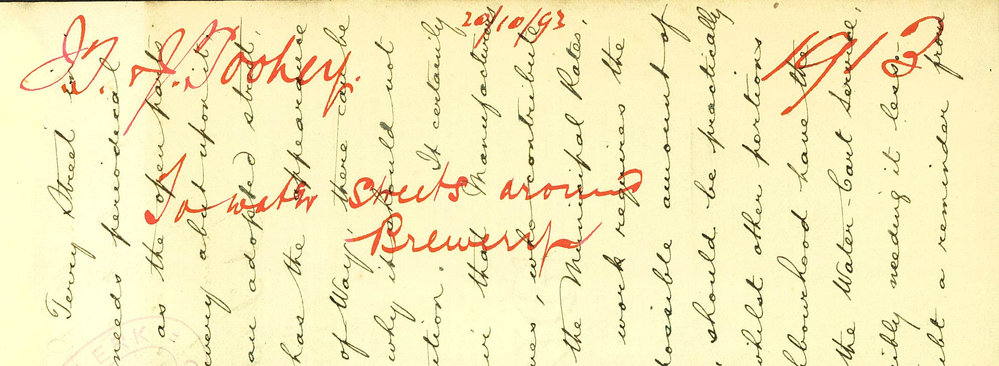 20/10/93
J. T. & J. Toohey.
1913
To water streets around
Brewery
Terry Street in
needs periodical
as the open part
wery abut upon it
an adopted street.
has the appearance
of Way, there can be
why it should not
ition. It certainly
ir that Manufacturers
ves, who contribute
the Municipal Rates,
work requires the
possible amount of
should be practically
whilst other portions
hbourhood have the
the Water-Cart service,
ibly needing it less.
bt a reminder from